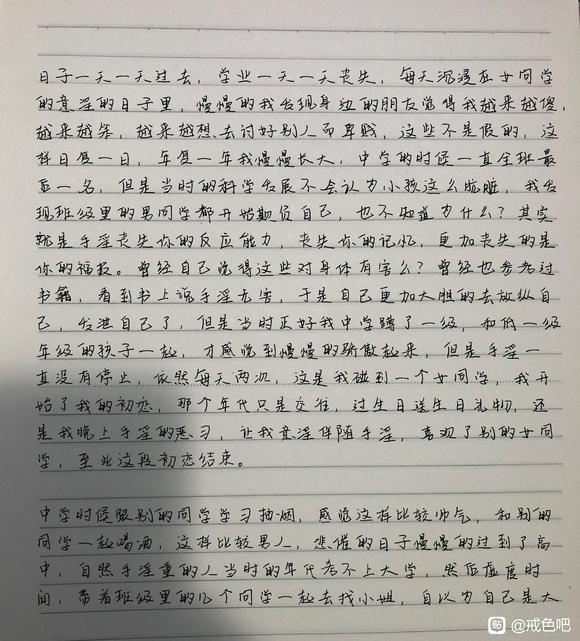 日子一天一天过去，学业一天一天丧失，每天沉浸在女同学
的意淫的日子里，慢慢的我发现身边的朋友觉得我越来越傻，
越来越笨，越来越想去讨好别人而卑贱，这些不是假的，这
样日复一日，年复一年我慢慢长大，中学的时候一直全班最
后一名，但是当时的科学发展不会认为小孩这么肮脏，我发
现班级里的男同学都开始欺负自己，也不知道为什么？其实
就是手淫丧失你的反应能力，丧失你的记忆，更加丧失的是
你的福报。曾经自己觉得这些对身体有害么？曾经也参考过
书籍，看到书上说手淫无害，于是自己更加大胆的去放纵自
己，发泄自己了，但是当时正好我中学蹲了一级，和低一级
年级的孩子一起，才感觉到慢慢的骄傲起来，但是手淫一
直没有停止，依然每天两次，这是我碰到一个女同学，我开
始了我的初恋，那个年代只是交往，过生日送生日礼物，还
是我晚上手淫的恶习，让我意淫伴随手淫，喜欢了别的女同
学，至此这段初恋结束。
中学时候跟别的同学学习抽烟，感觉这样比较帅气，和别的
同学一起喝酒，这样比较男人，悲催的日子慢慢的过到了高
中，自然手淫重的人当时的年代考不上大学，然后虚度时
间，带着班级里的几个同学一起去找小姐，自以为自己是大
贴 @戒色吧